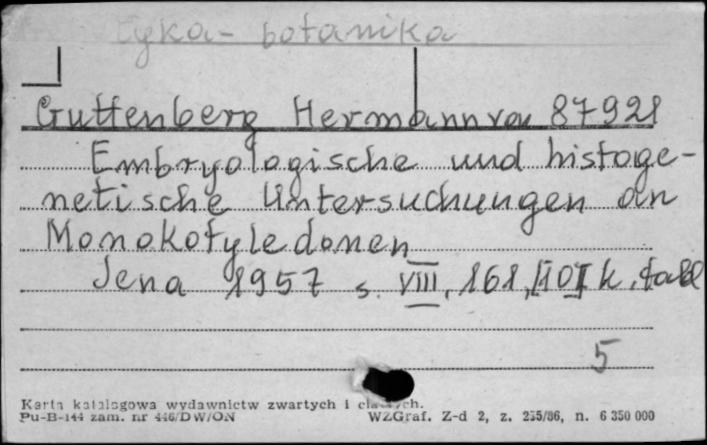 botanika
Guttenberg Hermann von 87921
Embryologische und histoge-
netische Untersuchungen an
Monokotyledonen
Jena 1957 s. VIII, 161, [10] k. tabl
5
Karta katalogowa wydawnictw zwartych i
Pu-B-144 zam. nr 446/DW/ON WZGraf. Z-d 2, z. 235/86, n. 6 350 000